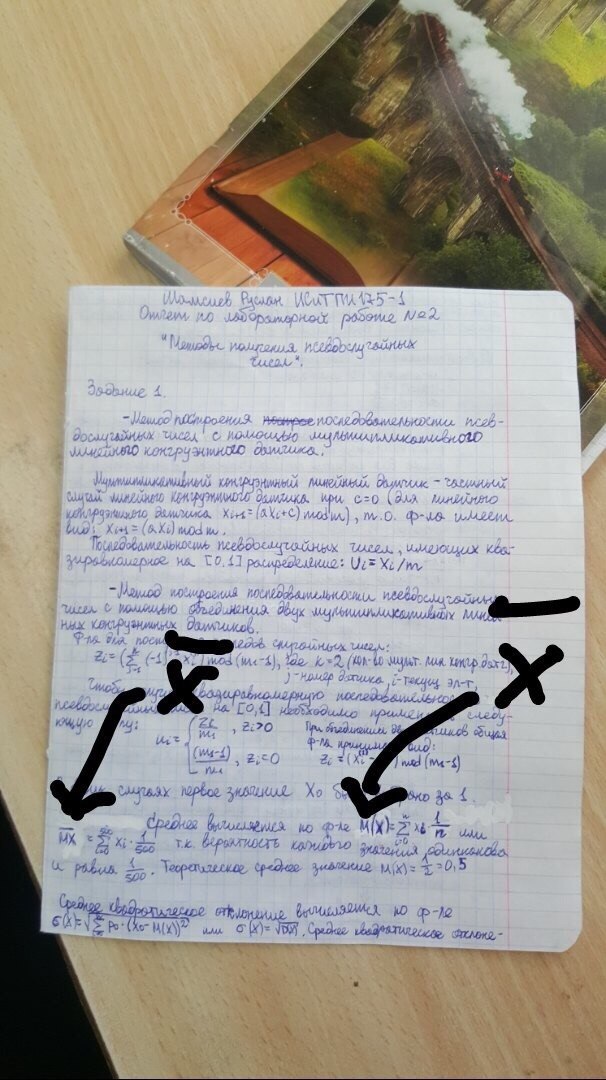 Шамсиев Руслан ИКиТПИ175-1
Отчет по лабораторной работе №2
"Методы получения псевдослучайных
чисел".
Задание 1.
-Метод построения последовательности псев-
дослучайных чисел с помощью мультипликативного
линейного конгруэнтного датчика.
Мультипликативный конгруэнтный линейный датчик - частный
случай линейного конгруэнтного датчика при c=0 (для линейного
конгруэнтного датчика xi+1=(axi+c) mod m), т.о. ф-ла имеет
вид: xi+1=(axi) mod m.
Последовательность псевдослучайных чисел, имеющих ква-
зиравномерное на [0,1] распределение: Ui=Xi/m
-Метод построения последовательности псевдослучайных
чисел с помощью объединения двух мультипликативных линей-
ных конгруэнтных датчиков.
Ф-ла для случайных чисел:
zi=( (-1) xi) mod (m1-1), где k=2 (кол-во мульт. лин. конгр. датч.),
j-номер датчика, i-текущ. эл-т.
Чтобы квазиравномерную последовательность
на [0,1] необходимо применить следу-
ющую
ui= { , zi>0
(m1-1)/m1 , zi=0
При объединении датчиков общая
ф-ла вид:
zi=( ) mod (m1-1)
случаях первое значение X0 за 1.
X̄
X
Среднее вычисляется по ф-ле M(X)=∑xi·1/n или
MX=∑xi·1/500 т.к. вероятность каждого значения одинакова
и равна 1/500. Теоретическое среднее значение M(X)=1/2=0,5
Среднее квадратическое отклонение вычисляется по ф-ле
σ(X)= или σ(X)= . Среднее квадратическое отклоне-